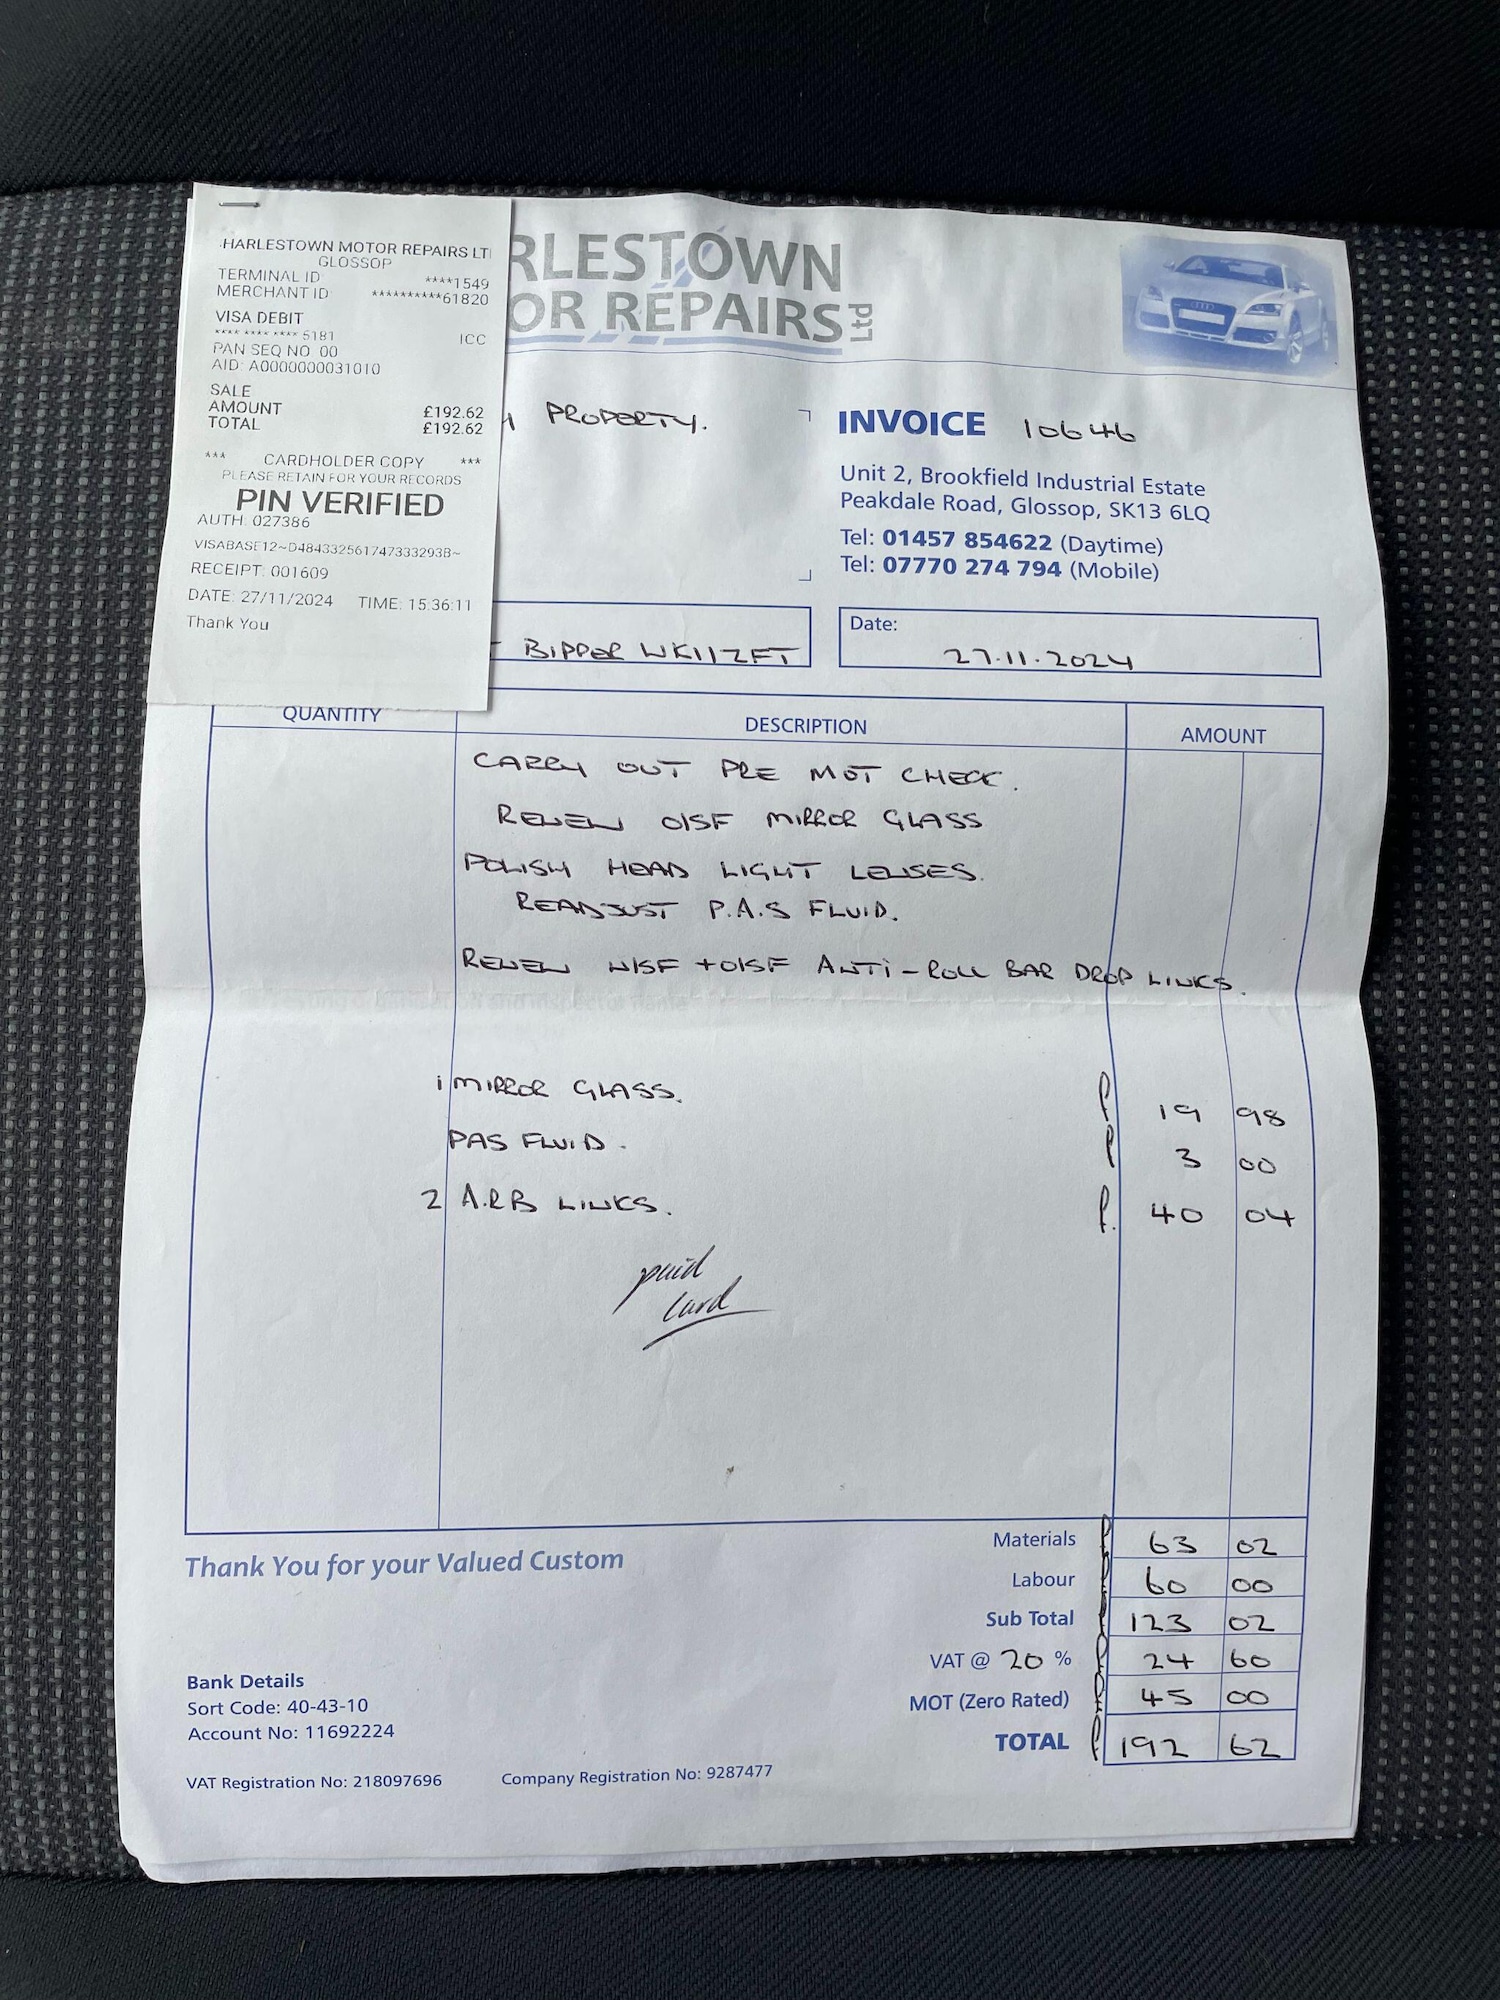 HARLESTOWN MOTOR REPAIRS LT
GLOSSOP
TERMINAL ID ****1549
MERCHANT ID **********61820
VISA DEBIT
**** **** **** 5181 ICC
PAN SEQ NO. 00
AID: A0000000031010
SALE
AMOUNT £192.62
TOTAL £192.62
*** CARDHOLDER COPY ***
PLEASE RETAIN FOR YOUR RECORDS
PIN VERIFIED
AUTH: 027386
VISABASE12~D484332561747333293B~
RECEIPT: 001609
DATE: 27/11/2024 TIME: 15:36:11
Thank You
RLESTOWN
OR REPAIRS Ltd
PROPERTY.
INVOICE 10646
Unit 2, Brookfield Industrial Estate
Peakdale Road, Glossop, SK13 6LQ
Tel: 01457 854622 (Daytime)
Tel: 07770 274 794 (Mobile)
BIPPER WK11ZFT
Date:
27.11.2024
QUANTITY DESCRIPTION AMOUNT
CARRY OUT PRE MOT CHECK.
RENEW O/SF MIRROR GLASS
POLISH HEAD LIGHT LENSES.
READJUST P.A.S FLUID.
RENEW N/SF + O/SF ANTI-ROLL BAR DROP LINKS.
1 MIRROR GLASS. £ 19 98
PAS FLUID. £ 3 00
2 A.R.B LINKS. £ 40 04
paid
card
Materials £ 63 02
Labour £ 60 00
Sub Total £ 123 02
VAT @ 20 % £ 24 60
MOT (Zero Rated) £ 45 00
TOTAL £ 192 62
Thank You for your Valued Custom
Bank Details
Sort Code: 40-43-10
Account No: 11692224
VAT Registration No: 218097696 Company Registration No: 9287477